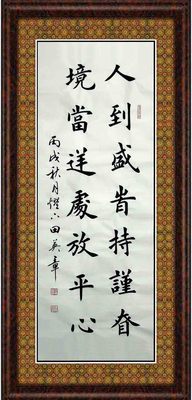 人到盛旹持謹眘
境當逆處放平心
丙戌秋月 田英章